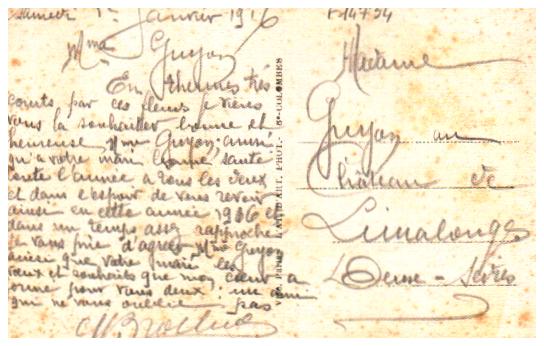 Samedi 1r Janvier 1916
Mme Guyon
En thermes très
courts par ces fleurs je viens
vous la souhaiter bonne et
heureuse, Mme Guyon, ainsi
qu'a votre mari bonne santé
toute l'année a tous les deux
et dans l'espoir de vous revoir
ainsi en cette année 1916 et
dans un temps assez rapproché
je vous prie d'agréer Mme Guyon
ainsi que votre mari les
vœux et souhaits que mon cœur a
formé pour vous deux. un ami
qui ne vous oublie pas
Madame
Guyon au
Château de
Limalonges
Deux-Sèvres
PHOT. Bs-COLOMBES